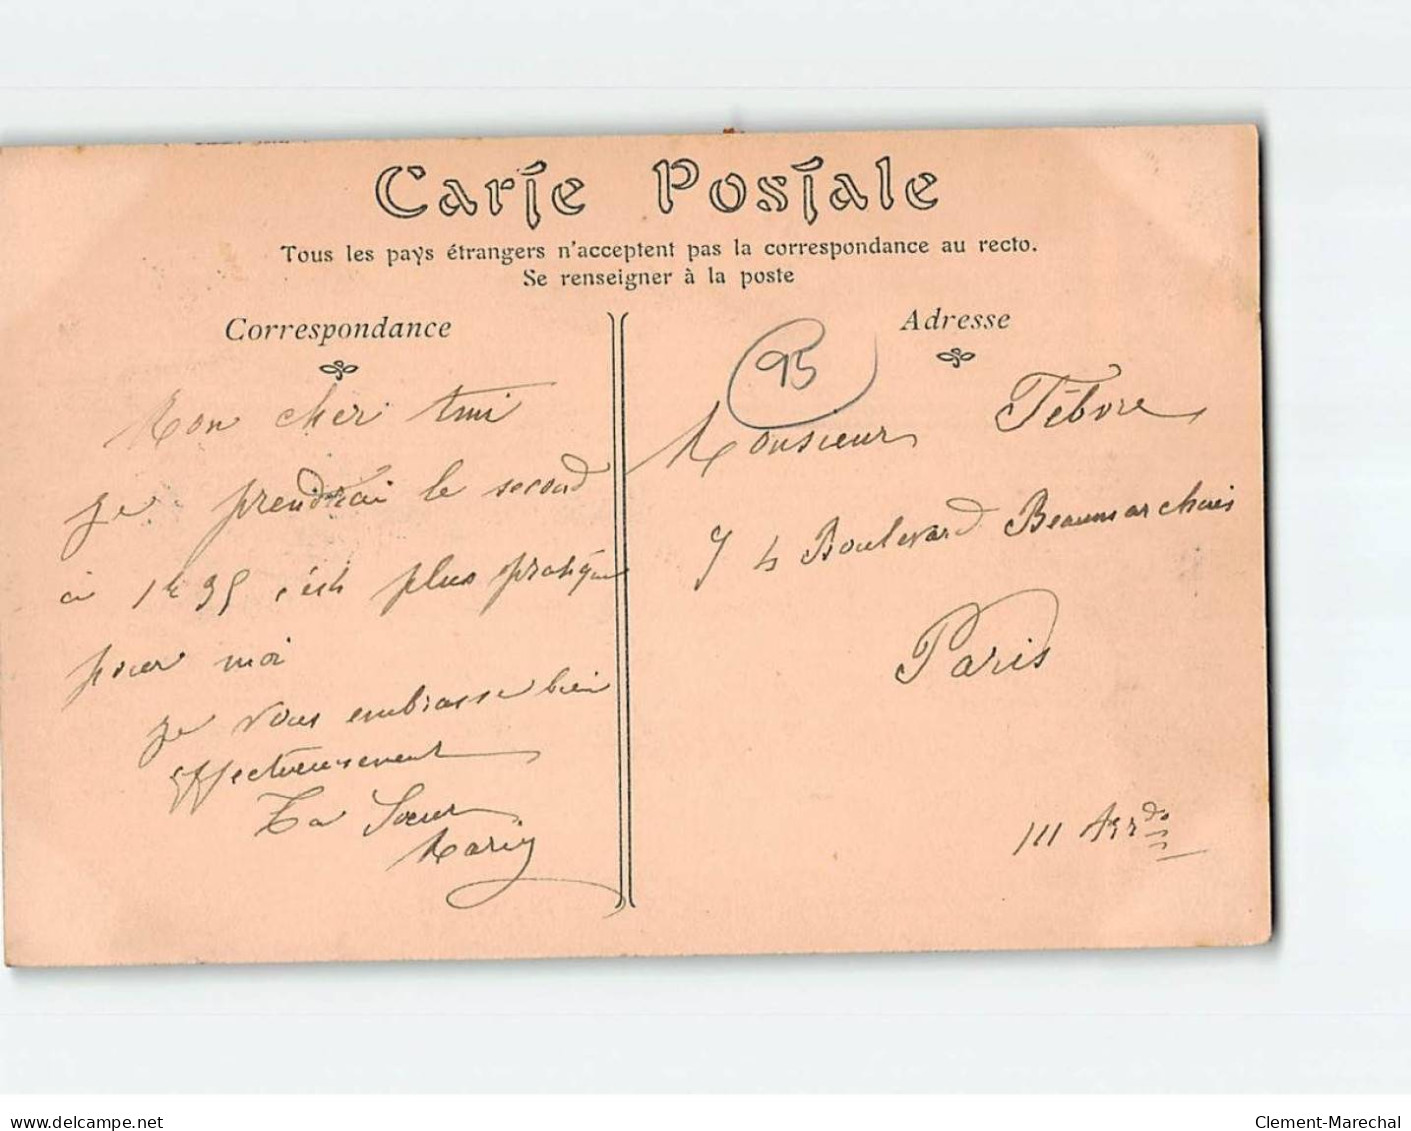 Carte Postale
Tous les pays étrangers n'acceptent pas la correspondance au recto.
Se renseigner à la poste
Correspondance
Mon cher
je prendrai le second
à 1h 35 c'est plus pratique
pour moi
je vous embrasse bien
affectueusement
Ta Soeur
Marie
Adresse
95
Monsieur Fèbvre
74 Boulevard Beaumarchais
Paris
III Arrdt
delcampe.net
Clement-Marechal